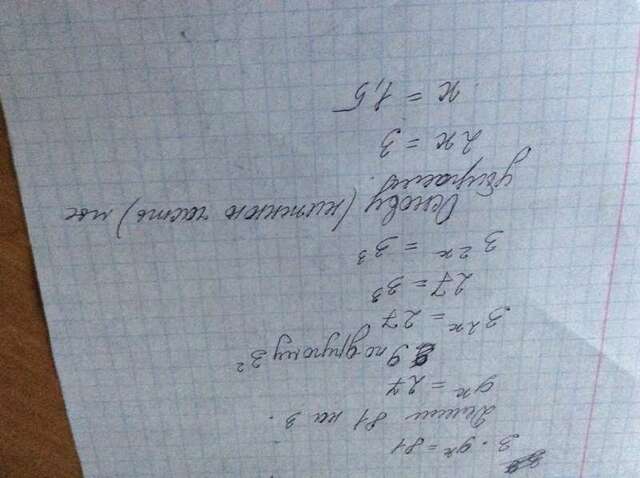 3 · 9ˣ = 81
Делим 81 на 3.
9ˣ = 27
9 по другому 3²
3²ˣ = 27
27 = 3³
3²ˣ = 3³
Основу (нижнюю часть) мы
убираем.
2x = 3
x = 1,5